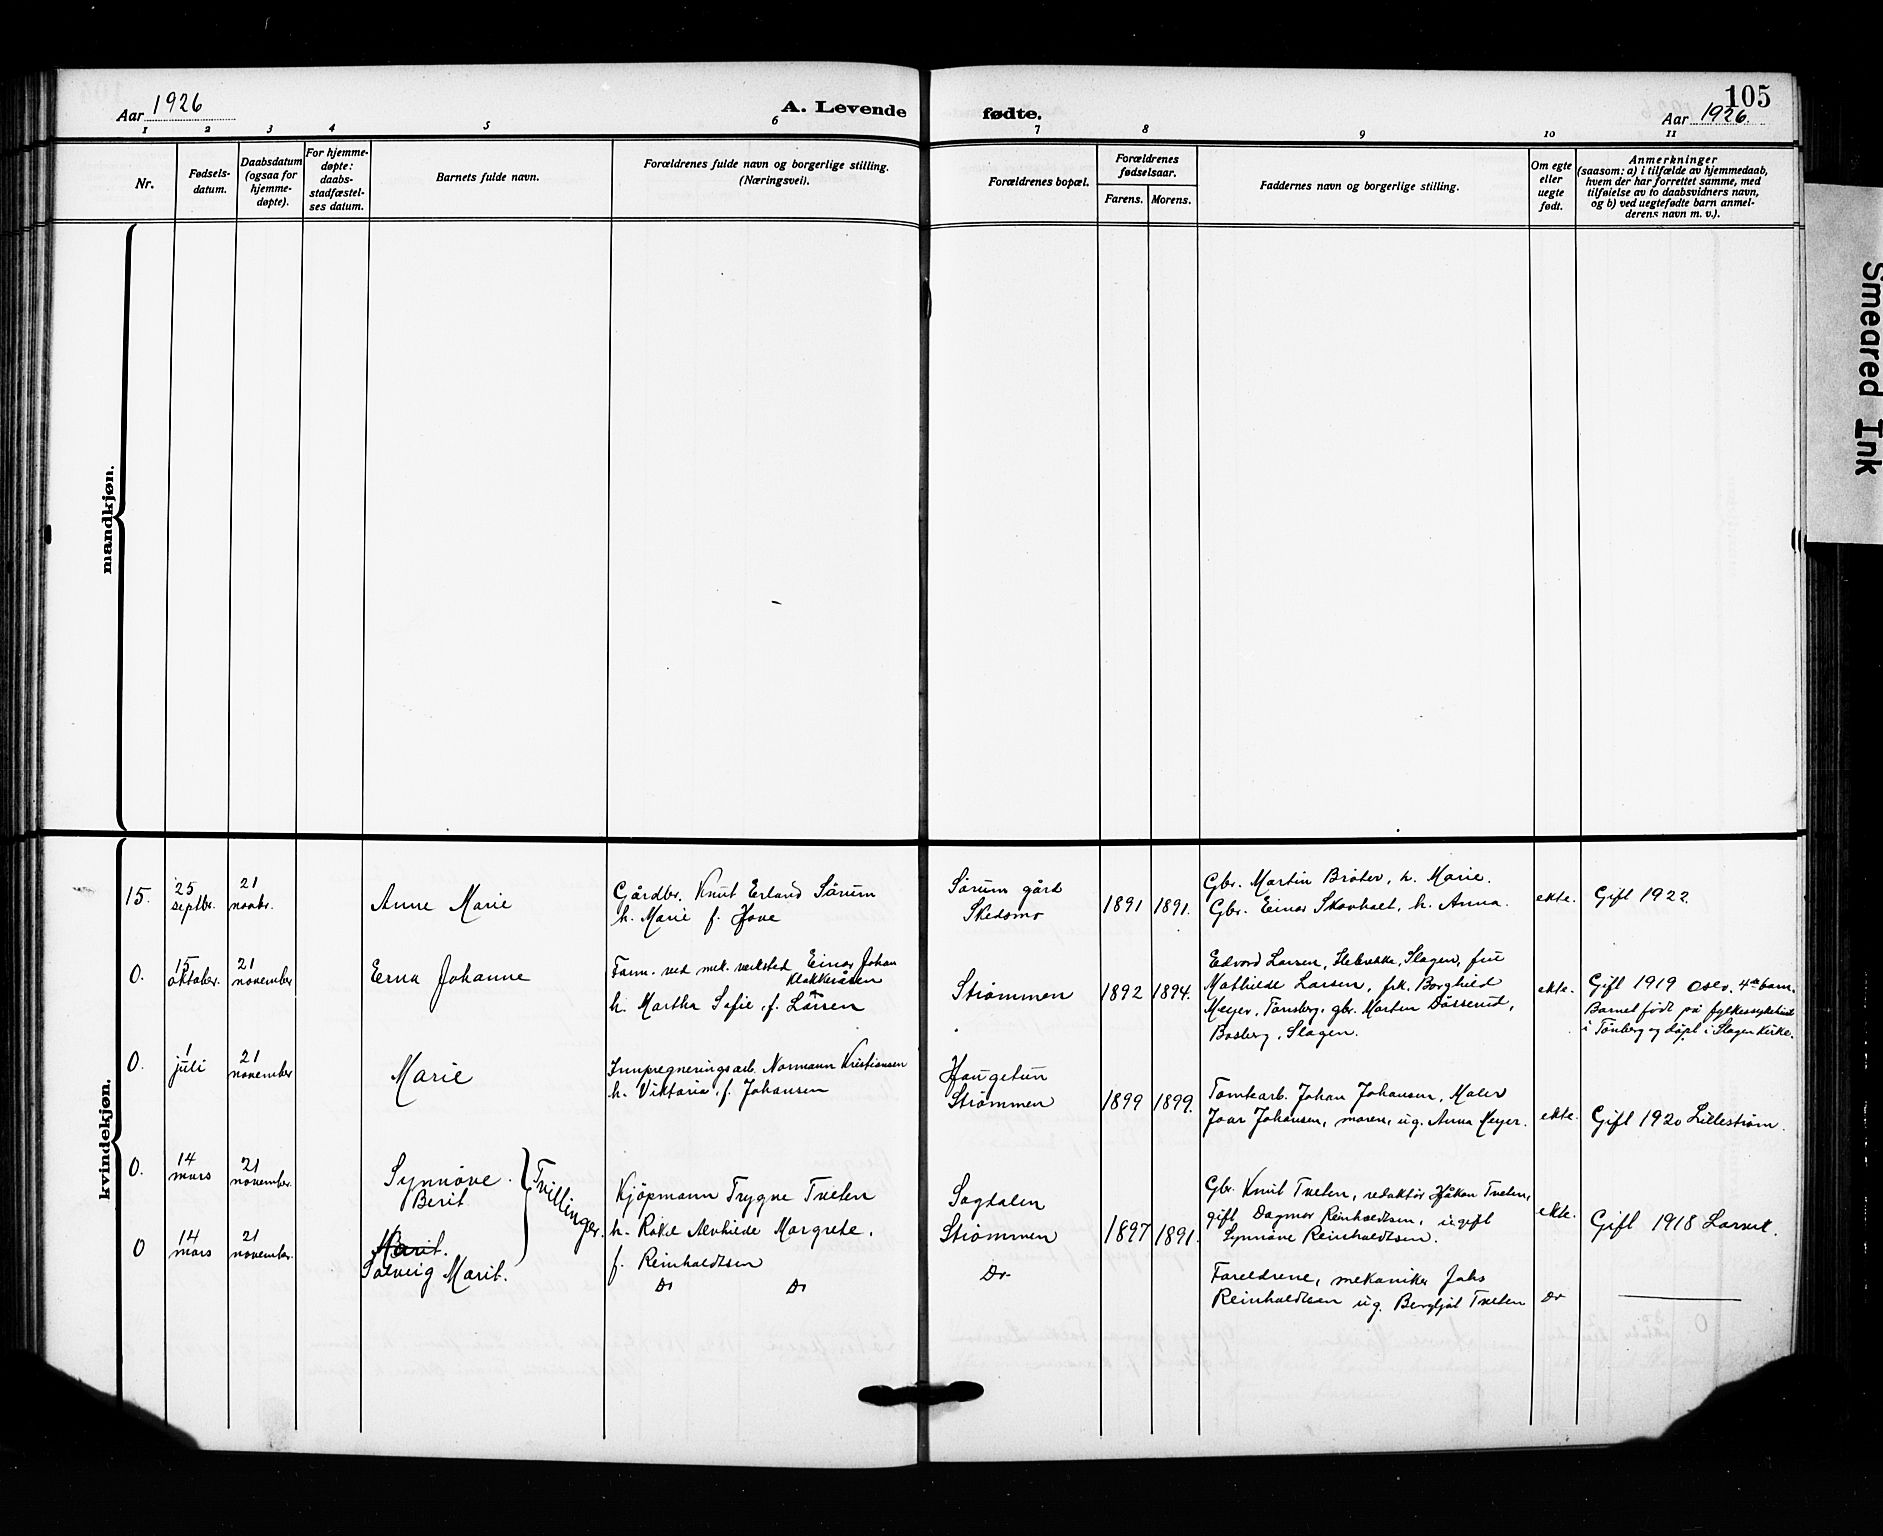 105
Aar 1926
A. Levende
fødte.
Aar 1926.
1 2 3 4 5 6 7 8 9 10 11
Nr.
Fødsels-
datum.
Daabsdatum
(ogsaa for
hjemme-
døpte).
For hjemme-
døpte:
daabs-
stadfæstel-
ses datum.
Barnets fulde navn.
Forældrenes fulde navn og borgerlige stilling.
(Næringsvei).
Forældrenes bopæl.
Forældrenes
fødselsaar.
Farens. Morens.
Faddernes navn og borgerlige stilling.
Om egte
eller
uegte
født.
Anmerkninger
(saasom: a) i tilfælde av hjemmedaab,
hvem der har forrettet samme, med
tilføielse av to daabsvidners navn,
og b) ved uegtefødte barn anmel-
derens navn m. v.).
Smeared Ink
mandkjøn.
kvindekjøn.
15.
25
septbr.
21
novbr.
Anne Marie
Gårdbr. Knut Erland Sørum
h. Marie f. Hove
Sørum gård
Skedsmo
1891 1891.
Gbr. Martin Bråter, h. Marie.
Gbr. Einar Skovholt, h. Anna.
ekte.
Gift 1922
0.
15
oktober.
21
november
Erna Johanne
Form. ved mek. verksted Einar Johan
Klakkeråsen
h. Martha Sofie, f. Larsen
Strømmen
1892 1894.
Edvard Larsen, Slagen, fru
Mathilde Larsen, frk. Borghild
Meyer, Tønsberg, gbr. Morten
Basberg, Slagen.
ekte.
Gift 1919 Oslo. 4de barn.
Barnet født på fylkessykehuset
i Tønberg og døpt i Slagen kirke.
0.
1
juli
21
november
Marie
Impregneringsarb. Normann Kristiansen
h. Viktoria, f. Johansen
Haugetun
Strømmen
1899 1899.
Tomtearb. Johan Johansen, Maler
Joar Johansen, moren, ug. Anna Meyer.
ekte.
Gift 1920 Lillestrøm.
0.
14
mars
21
november.
Synnøve
Berit
Tvillinger.
Kjøpmann Trygve Tveten
h. Rakel Alvhilde Margrete,
f. Reinholdtsen
Sagdalen
Strømmen
1897 1891.
Gbr. Knut Tveten, redaktør Håkon Tveten,
gift Dagmar Reinholdtsen, ugift
Synnøve Reinholdtsen.
ekte.
Gift 1918 Larvik.
0
14
mars
21
november.
Marit.
Solveig Marit.
Do Do
Do-
Foreldrene, mekaniker Johs
Reinholdtsen ug. Bergljot Tveten
Do